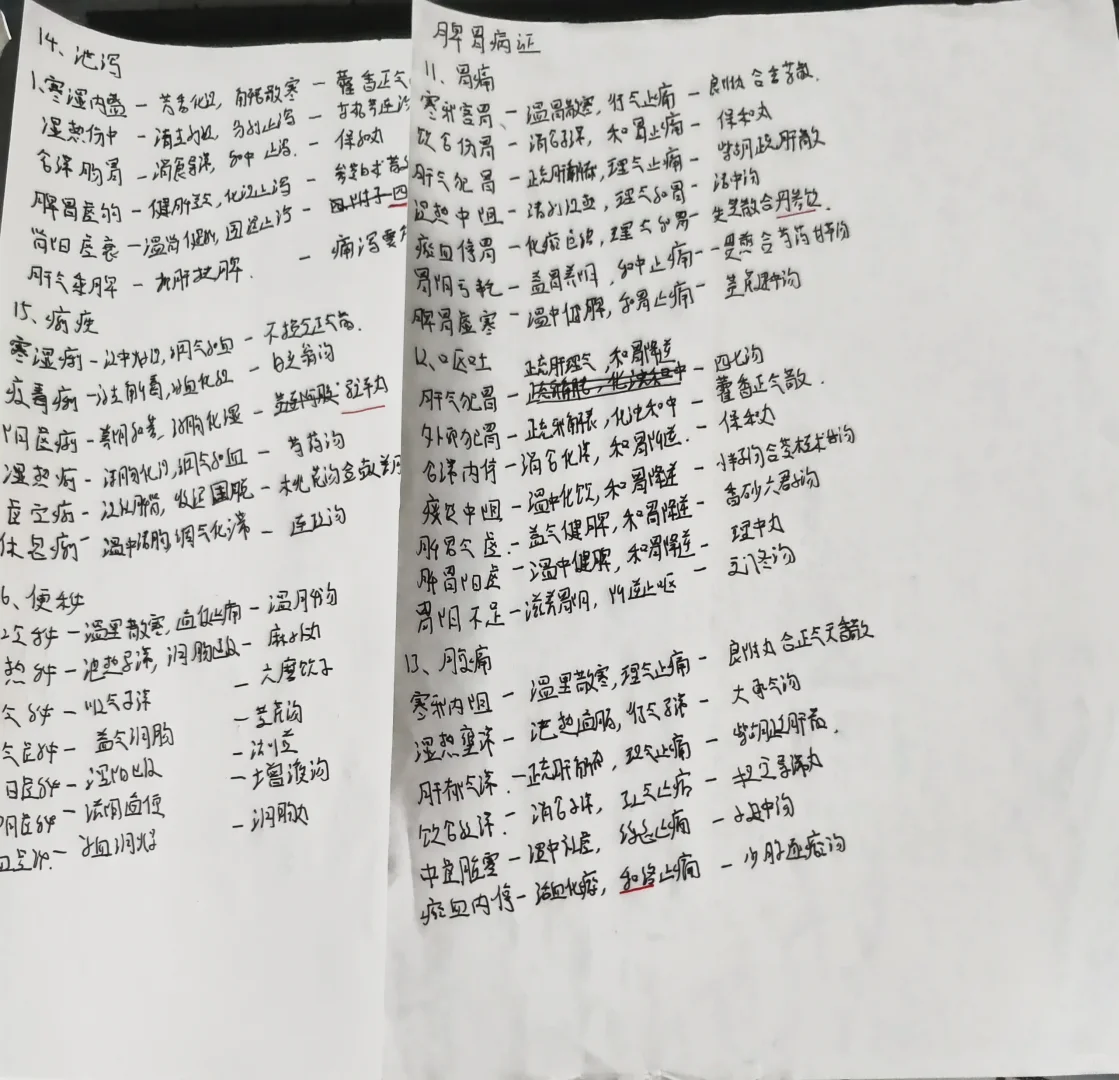 14、泄泻
1.寒湿内盛 - 芳香化湿, 解表散寒 - 藿香正气
湿热伤中 - 清热利湿, 分利止泻 -
食滞肠胃 - 消食导滞, 和中止泻. - 保和丸
脾胃虚弱 - 健脾益气, 化湿止泻 - 参苓白术散
肾阳虚衰 - 温肾健脾, 固涩止泻 - 四
肝气乘脾 - 抑肝扶脾. - 痛泻要
15、痢疾
寒湿痢 - 温中燥湿, 调气和血 - 不换金正气
疫毒痢 - 清热解毒, 凉血化湿 - 白头翁汤
阴虚痢 - 养阴和营, 清肠化湿 - 驻车丸
湿热痢 - 清肠化湿, 调气和血 - 芍药汤
虚寒痢 - 温补脾肾, 收涩固脱 - 桃花汤合
休息痢 - 温中清肠, 调气化滞 - 连理汤
6、便秘
冷秘 - 温里散寒, 通便止痛 - 温脾汤
热秘 - 泄热导滞, 润肠通便 - 麻子仁丸
气秘 - 顺气导滞 - 六磨饮子
气虚秘 - 益气润肠 - 黄芪汤
阳虚秘 - 温阳通便 -
阴虚秘 - 滋阴通便 - 增液汤
血虚秘. - 养血润燥 - 润肠丸
脾胃病证
11、胃痛
寒邪客胃 - 温胃散寒, 行气止痛 - 良附丸合香苏散.
饮食伤胃 - 消食导滞, 和胃止痛 - 保和丸
肝气犯胃 - 疏肝解郁, 理气止痛 - 柴胡疏肝散
湿热中阻 - 清热化湿, 理气和胃 - 清中汤
瘀血停胃 - 化瘀通络, 理气和胃 - 失笑散合丹参饮.
胃阴亏耗 - 益胃养阴, 和中止痛 - 一贯煎合芍药甘草汤
脾胃虚寒 - 温中健脾, 和胃止痛 - 黄芪建中汤
12、呕吐
肝气犯胃 - 疏肝理气, 和胃降逆 - 四七汤
外邪犯胃 - 疏邪解表, 化浊和中 - 藿香正气散.
食滞内停 - 消食化滞, 和胃降逆. - 保和丸
痰饮中阻 - 温中化饮, 和胃降逆 - 小半夏汤合苓桂术甘汤
脾胃气虚. - 益气健脾, 和胃降逆 - 香砂六君子汤
脾胃阳虚 - 温中健脾, 和胃降逆 - 理中丸
胃阴不足 - 滋养胃阴, 降逆止呕 - 麦门冬汤
13、腹痛
寒邪内阻 - 温里散寒, 理气止痛 - 良附丸合正气天香散
湿热壅滞 - 泄热通腑, 行气导滞 - 大承气汤
肝郁气滞. - 疏肝解郁, 理气止痛 - 柴胡疏肝散.
饮食积滞. - 消食导滞, 理气止痛 - 枳实导滞丸
中虚脏寒 - 温中补虚, 缓急止痛 - 小建中汤
瘀血内停 - 活血化瘀, 和络止痛 - 少腹逐瘀汤